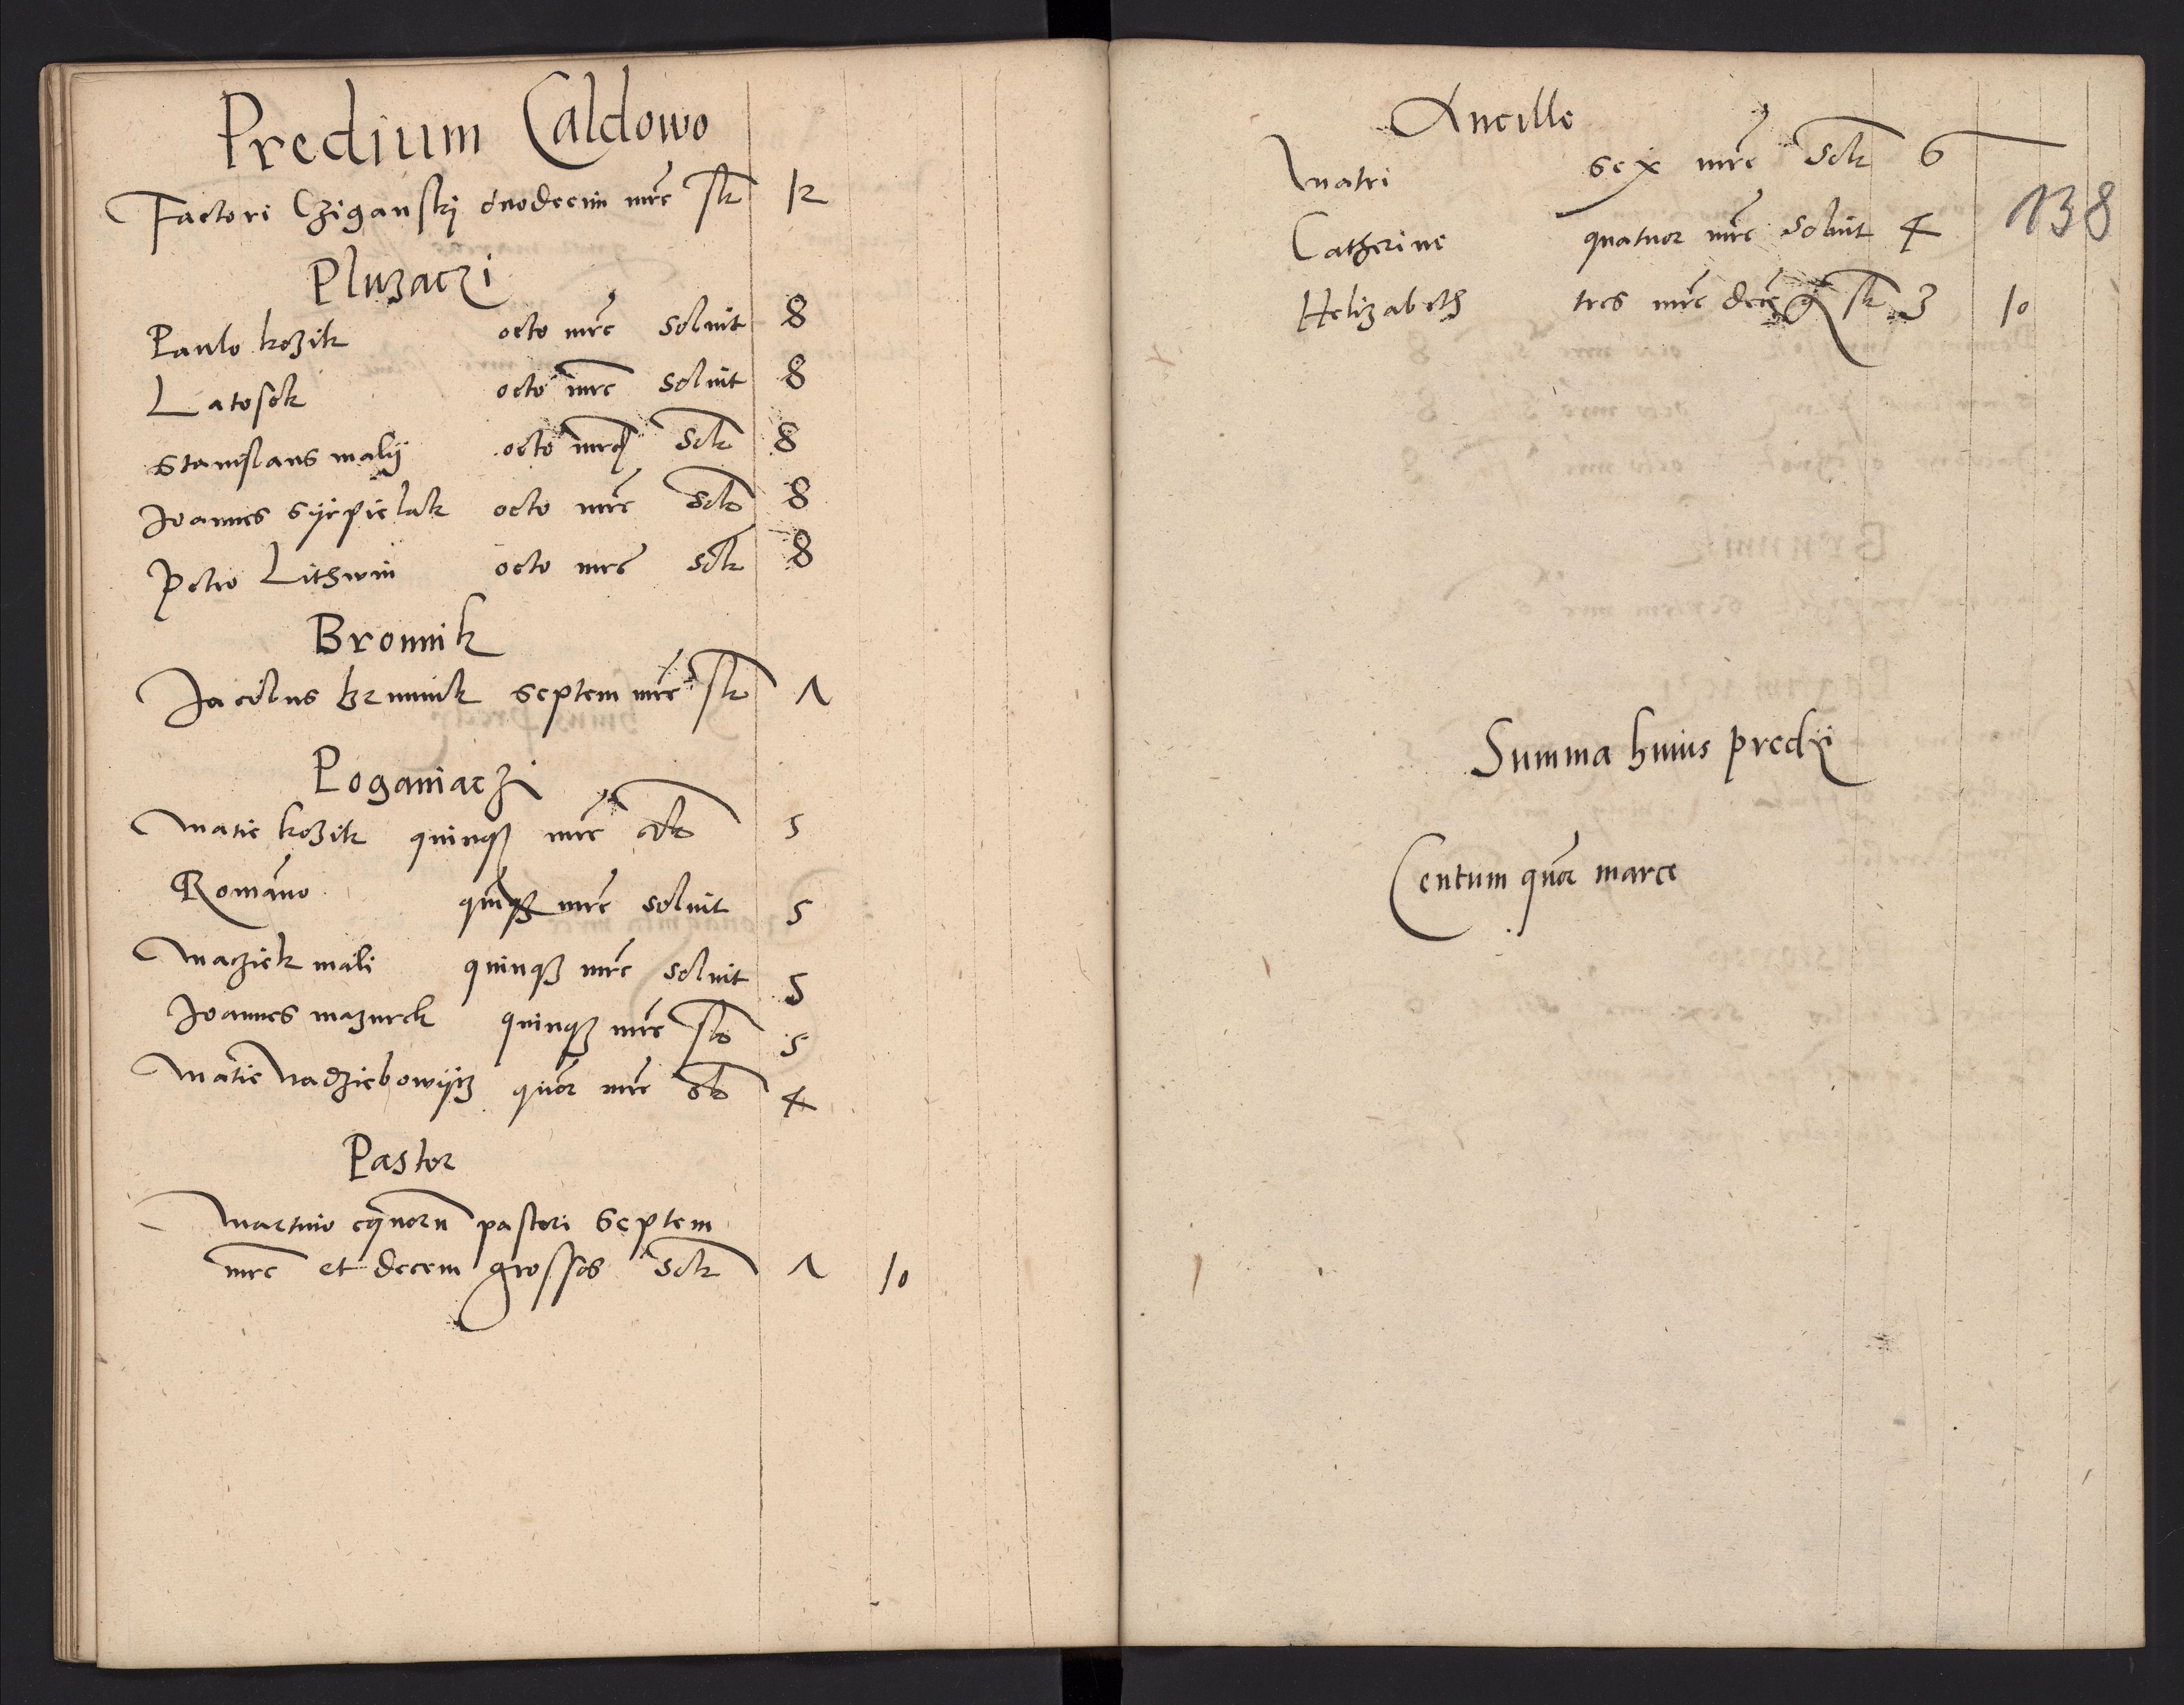 Predium Caldowo
Factori Cziganskj duodecim mrc slt 12
Pluzaczi
Paulo kozik octo mrc soluit 8
Latosek octo mrc soluit 8
Stanislaus malÿ octo mrc solt 8
Joannes Syrpielak octo mrc solt 8
Petro Lithwin octo mrc solt 8
Bronnik
Jacobus brunnik septem mrc slt 7
Poganiaczi
Matie kozik quinqz mrc solt 5
Romano quinqz mrc soluit 5
Macziek mali quinqz mrc soluit 5
Joannes mazurek quinqz mrc slt 5
Matie Nadziebowycz quor mrc solt 4
Pastor
Martino equoru pastori Septem
mrc et decem grossos solt 7 10
Ancille
Matri sex mrc solt 6
138
Catherine quatuor mrc soluit 4
Helizabeth tres mrc dece g slt 3 10
Summa huius predij
Centum quor marce